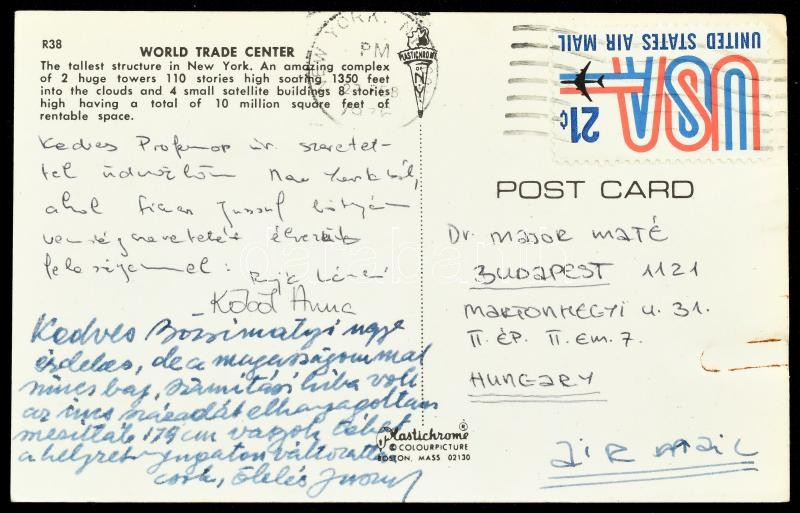 R38
WORLD TRADE CENTER
The tallest structure in New York. An amazing complex
of 2 huge towers 110 stories high soaring 1350 feet
into the clouds and 4 small satellite buildings 8 stories
high having a total of 10 million square feet of
rentable space.
Kedves Professor úr szeretet-
tel üdvözlöm New Yorkból,
ahol
élvezzük
feleségemmel:
Kőbol Anna
Kedves
érdekes, de a magasságommal
nincs baj, számítási hiba volt
az incs századát elhanyagoltam
mezítláb 179 cm vagyok tehát
a helyzet nyugaton változatlan
csók, ölelés
NEW YORK, N.Y.
PM
PLASTICHROME
UNITED STATES AIR MAIL
USA
21¢
POST CARD
Dr. MAJOR MATÉ
BUDAPEST 1121
MARTONHEGYI u. 31.
II. ÉP. II. EM. 7.
HUNGARY
AIR MAIL
Plastichrome®
© COLOURPICTURE
BOSTON, MASS 02130